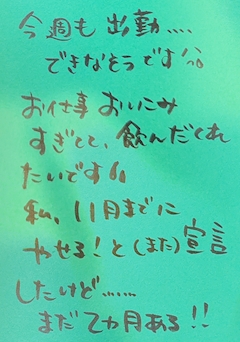 今週も 出勤....
できなそうです
お仕事 おいこみ
すぎてて、飲んだくれ
たいです
私、11月までに
やせる！と(また)宣言
したけど……
まだ2カ月ある!!